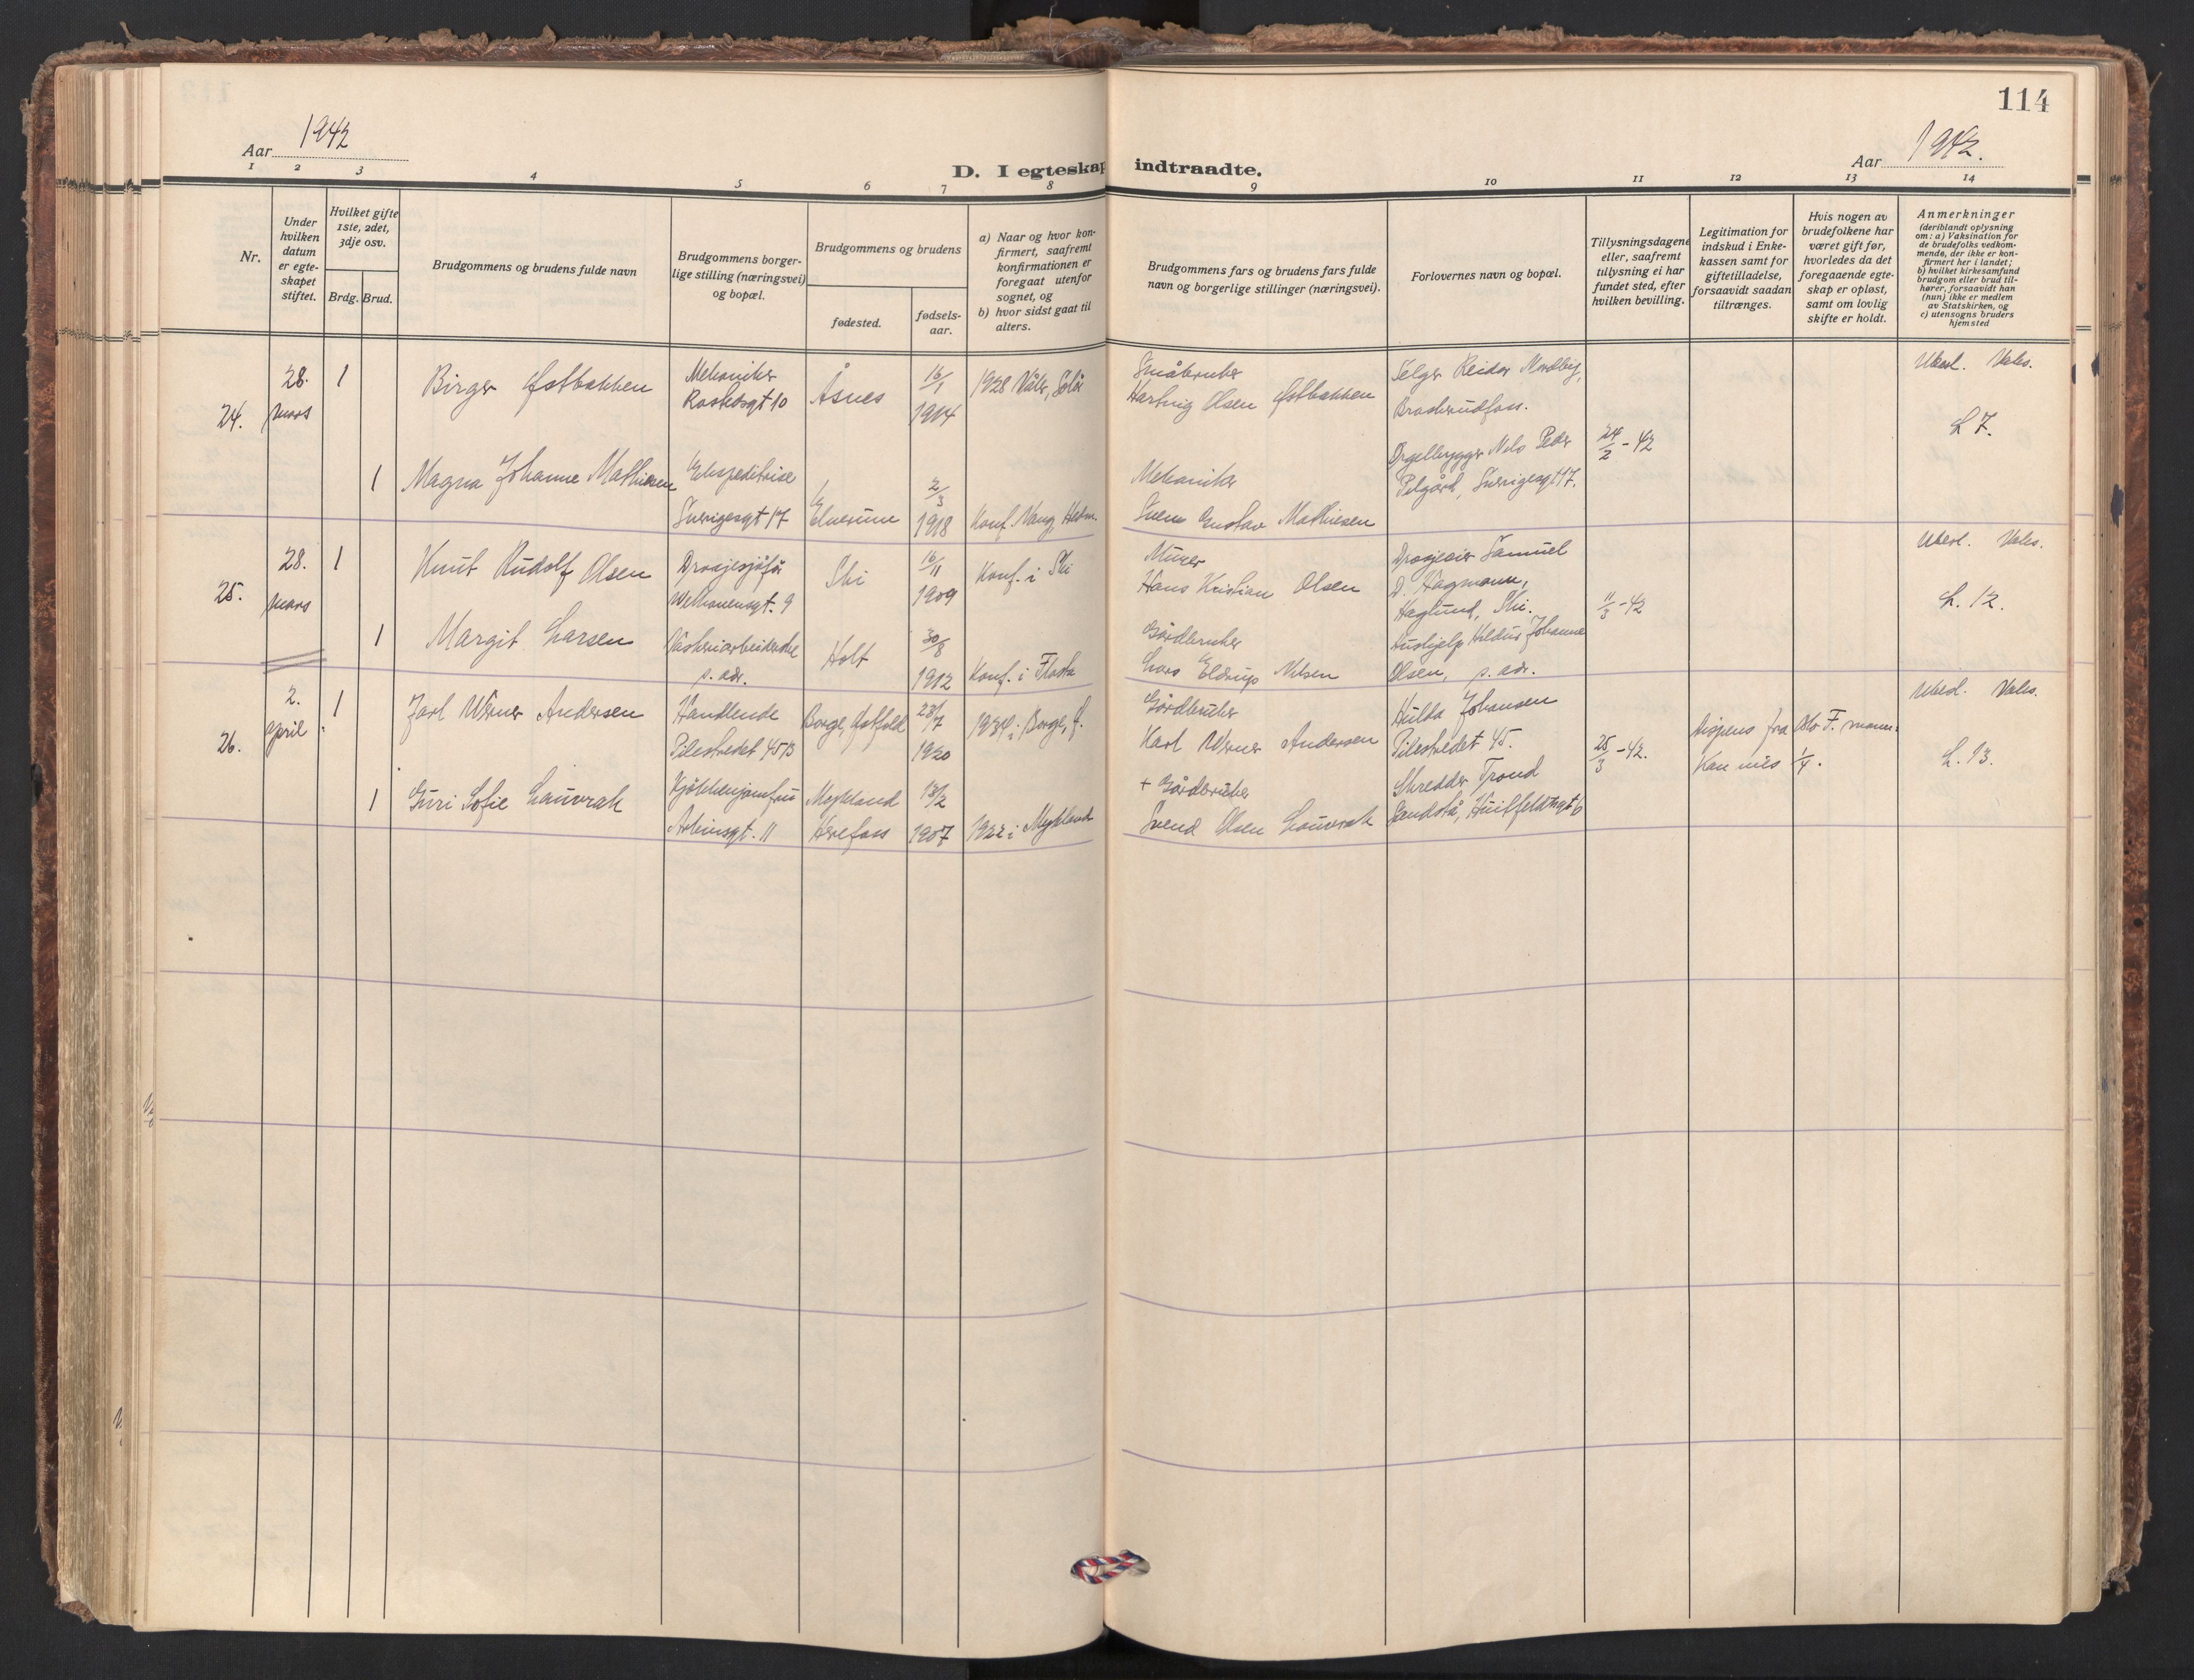 114
Aar 1942
D. I egteskap indtraadte.
Aar 1942.
1 2 3 4 5 6 7 8 9 10 11 12 13 14
Nr.
Under hvilken datum er egteskapet stiftet.
Hvilket gifte 1ste, 2det, 3dje osv.
Brdg. Brud.
Brudgommens og brudens fulde navn
Brudgommens borgerlige stilling (næringsvei) og bopæl.
Brudgommens og brudens
fødested.
fødselsaar.
a) Naar og hvor konfirmert, saafremt konfirmationen er foregaat utenfor sognet, og
b) hvor sidst gaat til alters.
Brudgommens fars og brudens fars fulde navn og borgerlige stillinger (næringsvei).
Forlovernes navn og bopæl.
Tillysningsdagene eller, saafremt tillysning ei har fundet sted, efter hvilken bevilling.
Legitimation for indskud i Enkekassen samt for giftetilladelse, forsaavidt saadan tiltrænges.
Hvis nogen av brudefolkene har været gift før, hvorledes da det foregaaende egteskap er opløst, samt om lovlig skifte er holdt.
Anmerkninger
(deriblandt oplysning om: a) Vaksination for de brudefolks vedkommende, der ikke er konfirmert her i landet; b) hvilket kirkesamfund brudgom eller brud tilhører, forsaavidt han (hun) ikke er medlem av Statskirken, og c) utensogns bruders hjemsted
24. 28. mars 1 Birger Østbakken Mekaniker Åsnes 16/1 1914 1928 Våler, Solør Småbruker Hartvig Olsen Østbakken Selger Reidar Nordby, 24/2 - 42 L 7.
1 Magna Johanne Mathiesen Ekspeditrise Sverigesgt 17 Elverum 2/3 1918 Konf. Vang, Hedm. Mekaniker Svein Gustav Mathiesen Orgelbygger Nils Peder Sverigesgt 17.
25. 28. mars 1 Knut Rudolf Olsen Drosjesjåfør Welhavensgt. 9 Ski 16/11 1909 Konf. i Ski Murer Hans Kristian Olsen Drosjeeier Samuel D. Hagmann, Haglund, Ski. 11/3 - 42 L. 12.
1 Margit Larsen s. adr. Holt 30/8 1912 Konf. i Flosta Gårdbruker Lars Eldrup Nilsen Hushjelp Johanne Olsen, s. adr.
26. 2. april 1 Jarl Werner Andersen Handlende Pilestredet 45 B Borge, Østfold 23/7 1920 1934 i Borge, Ø. Gårdbruker Karl Werner Andersen Hulda Johansen Pilestredet 45. 25/3 - 42. Dispens fra Oslo 1/4. L. 13.
1 Guri Sofie Lauvrak Kjøkkenjomfru gt. 11 Mykland Herefoss 13/2 1907 1922 i Mykland + Gårdbruker Svend Olsen Lauvrak Skredder Trond Sandstå, Huitfeldtsgt 6